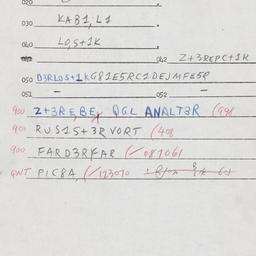 020
030 KA81, L1
040 LO,S+1K
042 Z+3REPC+1K
050 D3RLOS+1KG81E5RC1DEJMFE5R
051 - 052 -
900 Z+3REBE, QGL ANALT3R (998
901 RUS15+3RVORT (408
900 FARD3RFAR (✓081061
GNT PIC8A, (✓123070